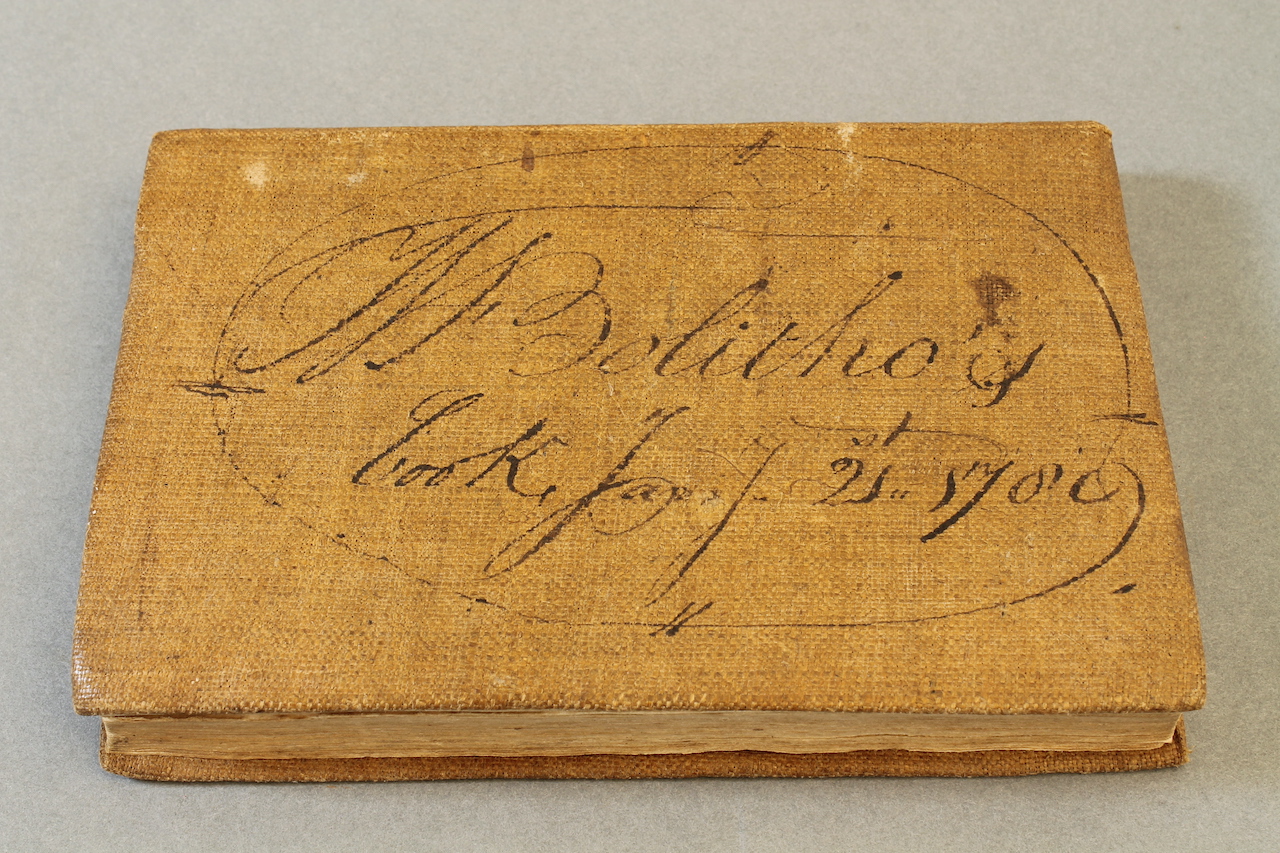 W Bolitho's
Book, Jany. 21st 1786